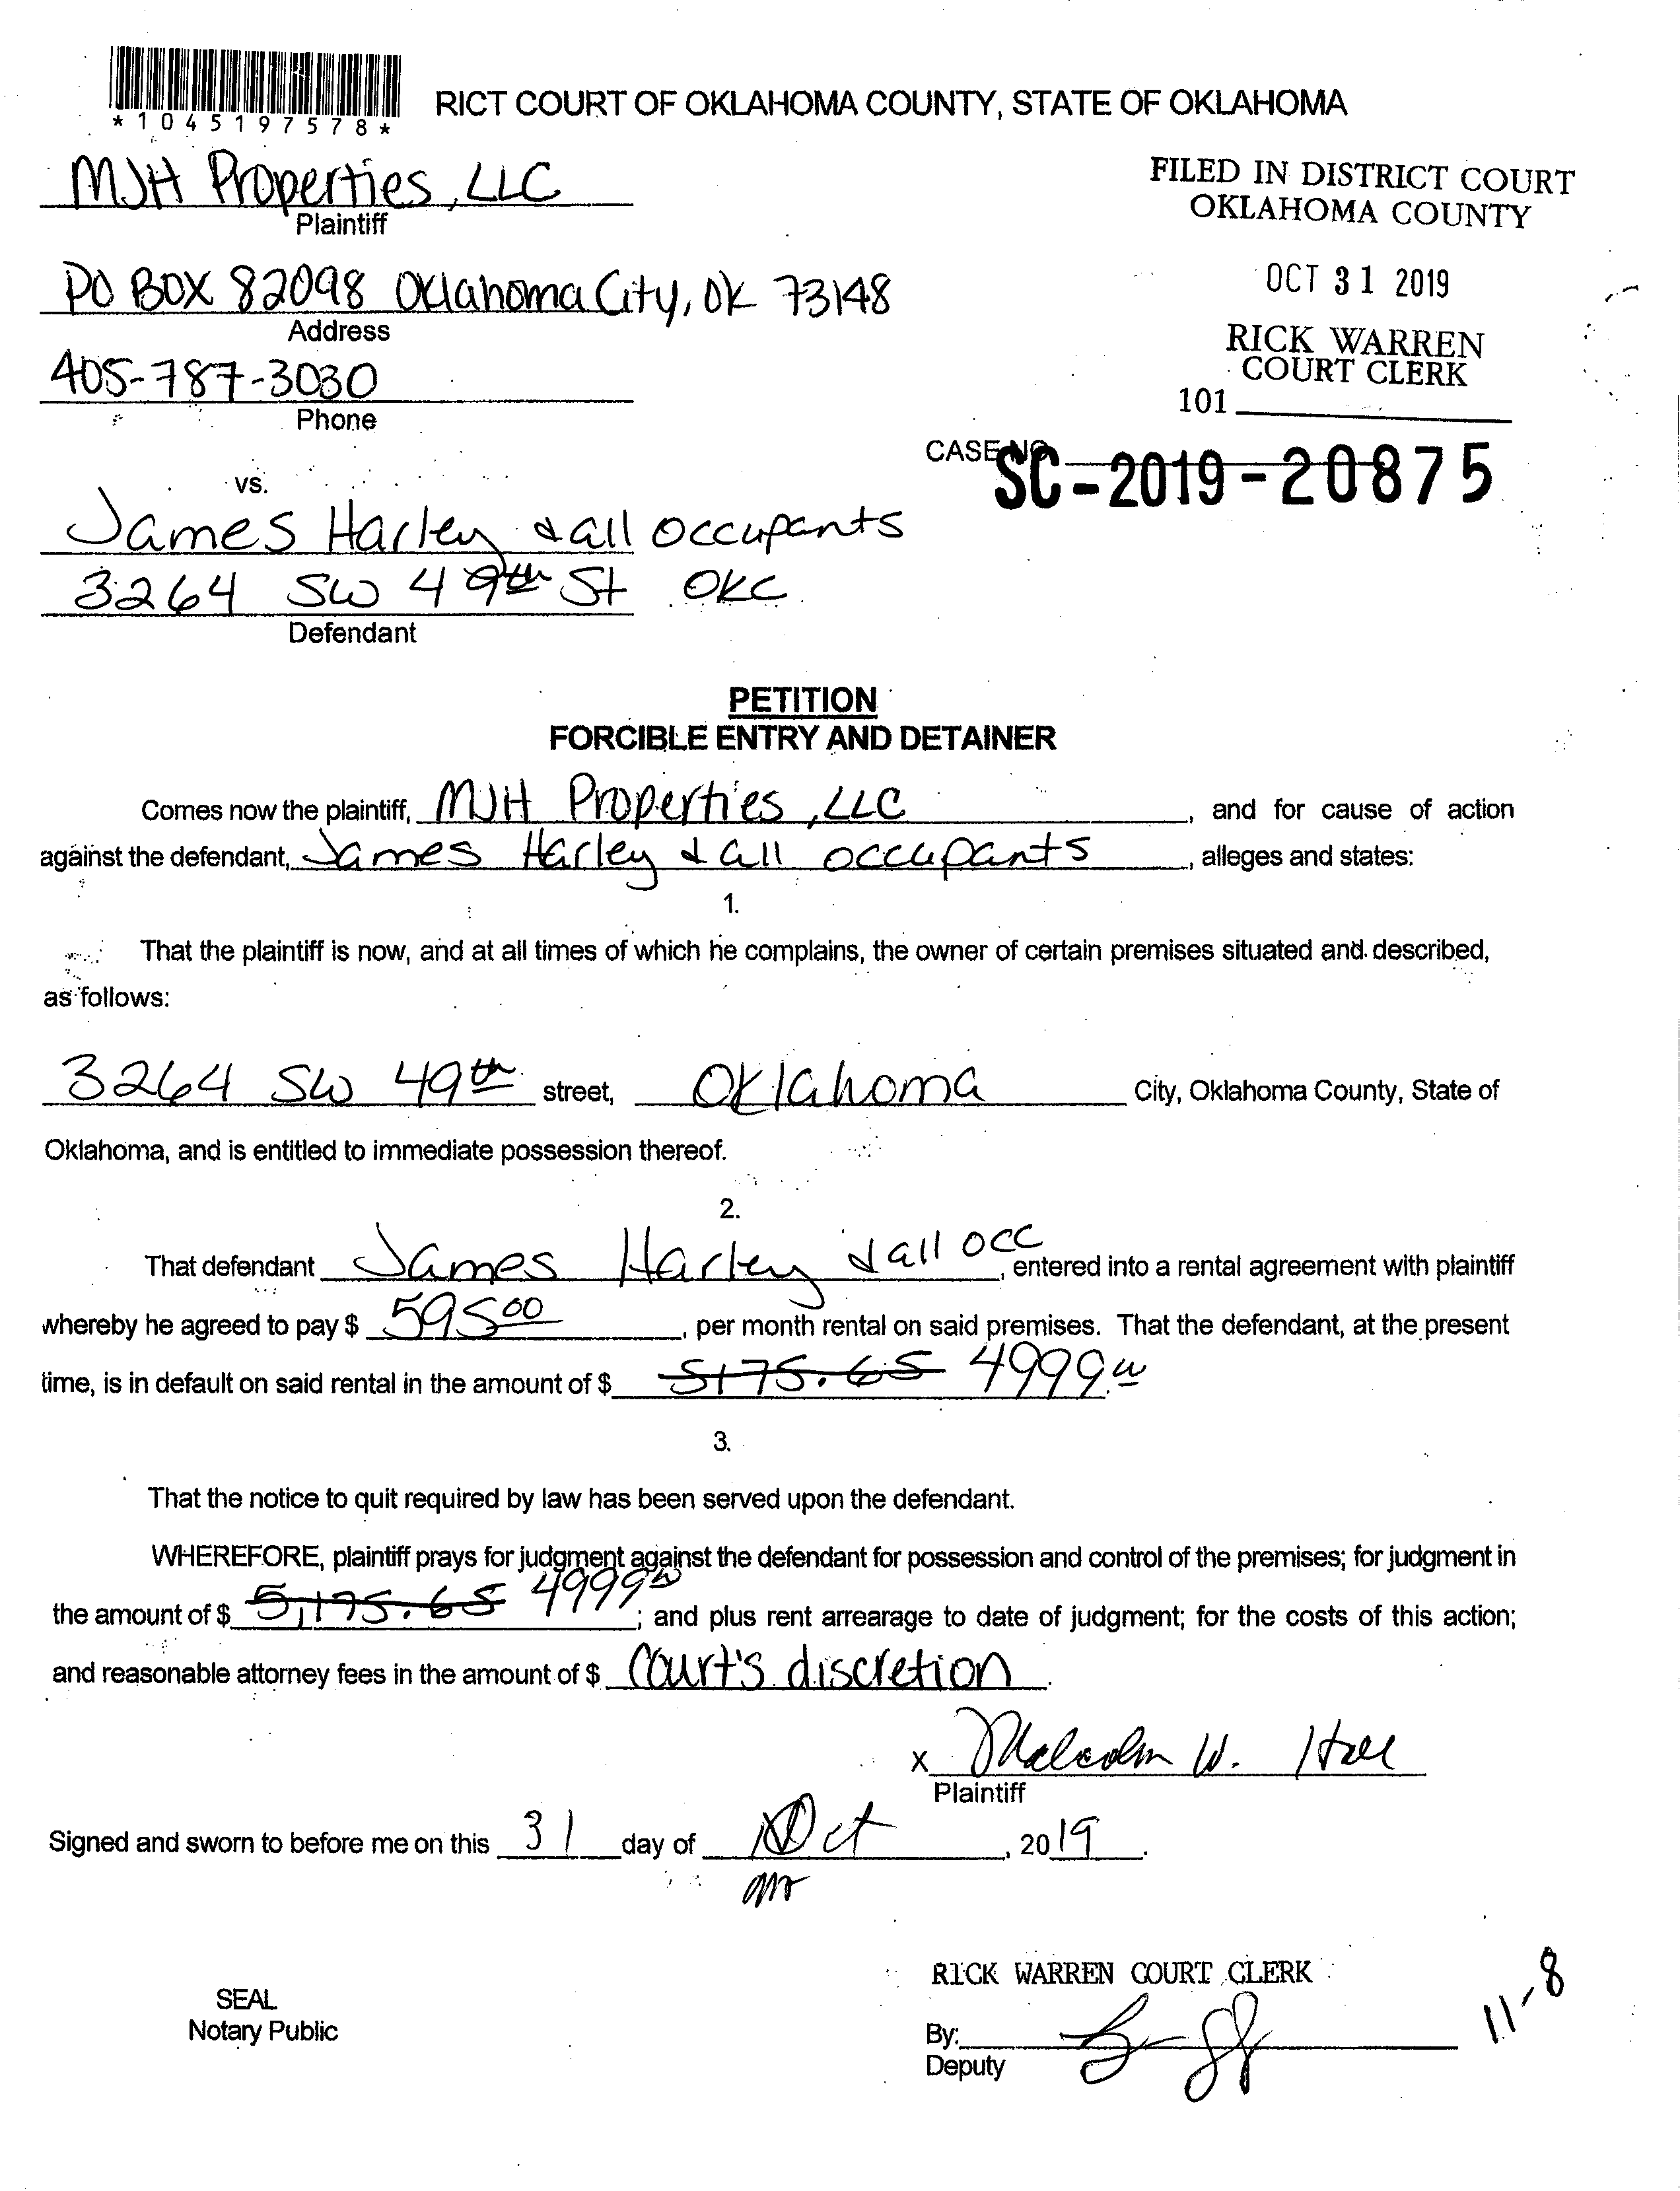 *1045197578*
RICT COURT OF OKLAHOMA COUNTY, STATE OF OKLAHOMA
MJH Properties, LLC
Plaintiff
FILED IN DISTRICT COURT
OKLAHOMA COUNTY
PO BOX 82098 Oklahoma City, OK 73148
Address
OCT 31 2019
405-787-3030
Phone
RICK WARREN
COURT CLERK
101
CASE NO. SC-2019-20875
vs.
James Harley & all occupants
3264 SW 49th St OKC
Defendant
PETITION
FORCIBLE ENTRY AND DETAINER
Comes now the plaintiff, MJH Properties, LLC, and for cause of action
against the defendant, James Harley & all occupants, alleges and states:
1.
That the plaintiff is now, and at all times of which he complains, the owner of certain premises situated and described,
as follows:
3264 SW 49th street, Oklahoma City, Oklahoma County, State of
Oklahoma, and is entitled to immediate possession thereof.
2.
That defendant James Harley & all occ, entered into a rental agreement with plaintiff
whereby he agreed to pay $ 595 00, per month rental on said premises. That the defendant, at the present
time, is in default on said rental in the amount of $ 5175.65 4999.00
3.
That the notice to quit required by law has been served upon the defendant.
WHEREFORE, plaintiff prays for judgment against the defendant for possession and control of the premises; for judgment in
the amount of $ 5,175.65 4999 00; and plus rent arrearage to date of judgment; for the costs of this action;
and reasonable attorney fees in the amount of $ Court's discretion.
X Malcolm W. Hall
Plaintiff
Signed and sworn to before me on this 31 day of Oct, 2019.
SEAL
Notary Public
RICK WARREN COURT CLERK
By:
Deputy
11-8